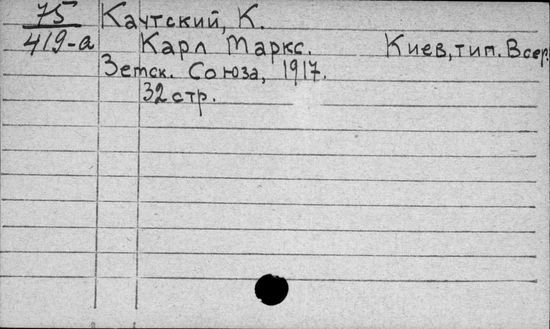 75 Каутский, К.
419-а Карл Маркс. Киев, тип. Всер.
Земск. Союза, 1917.
32 стр.